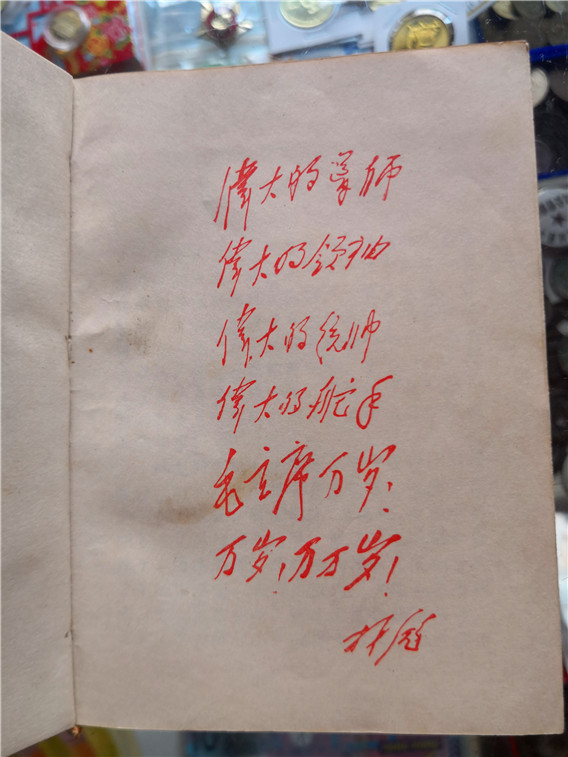 偉大的导师
偉大的领袖
偉大的统帅
偉大的舵手
毛主席万岁!
万岁!万万岁!
林彪